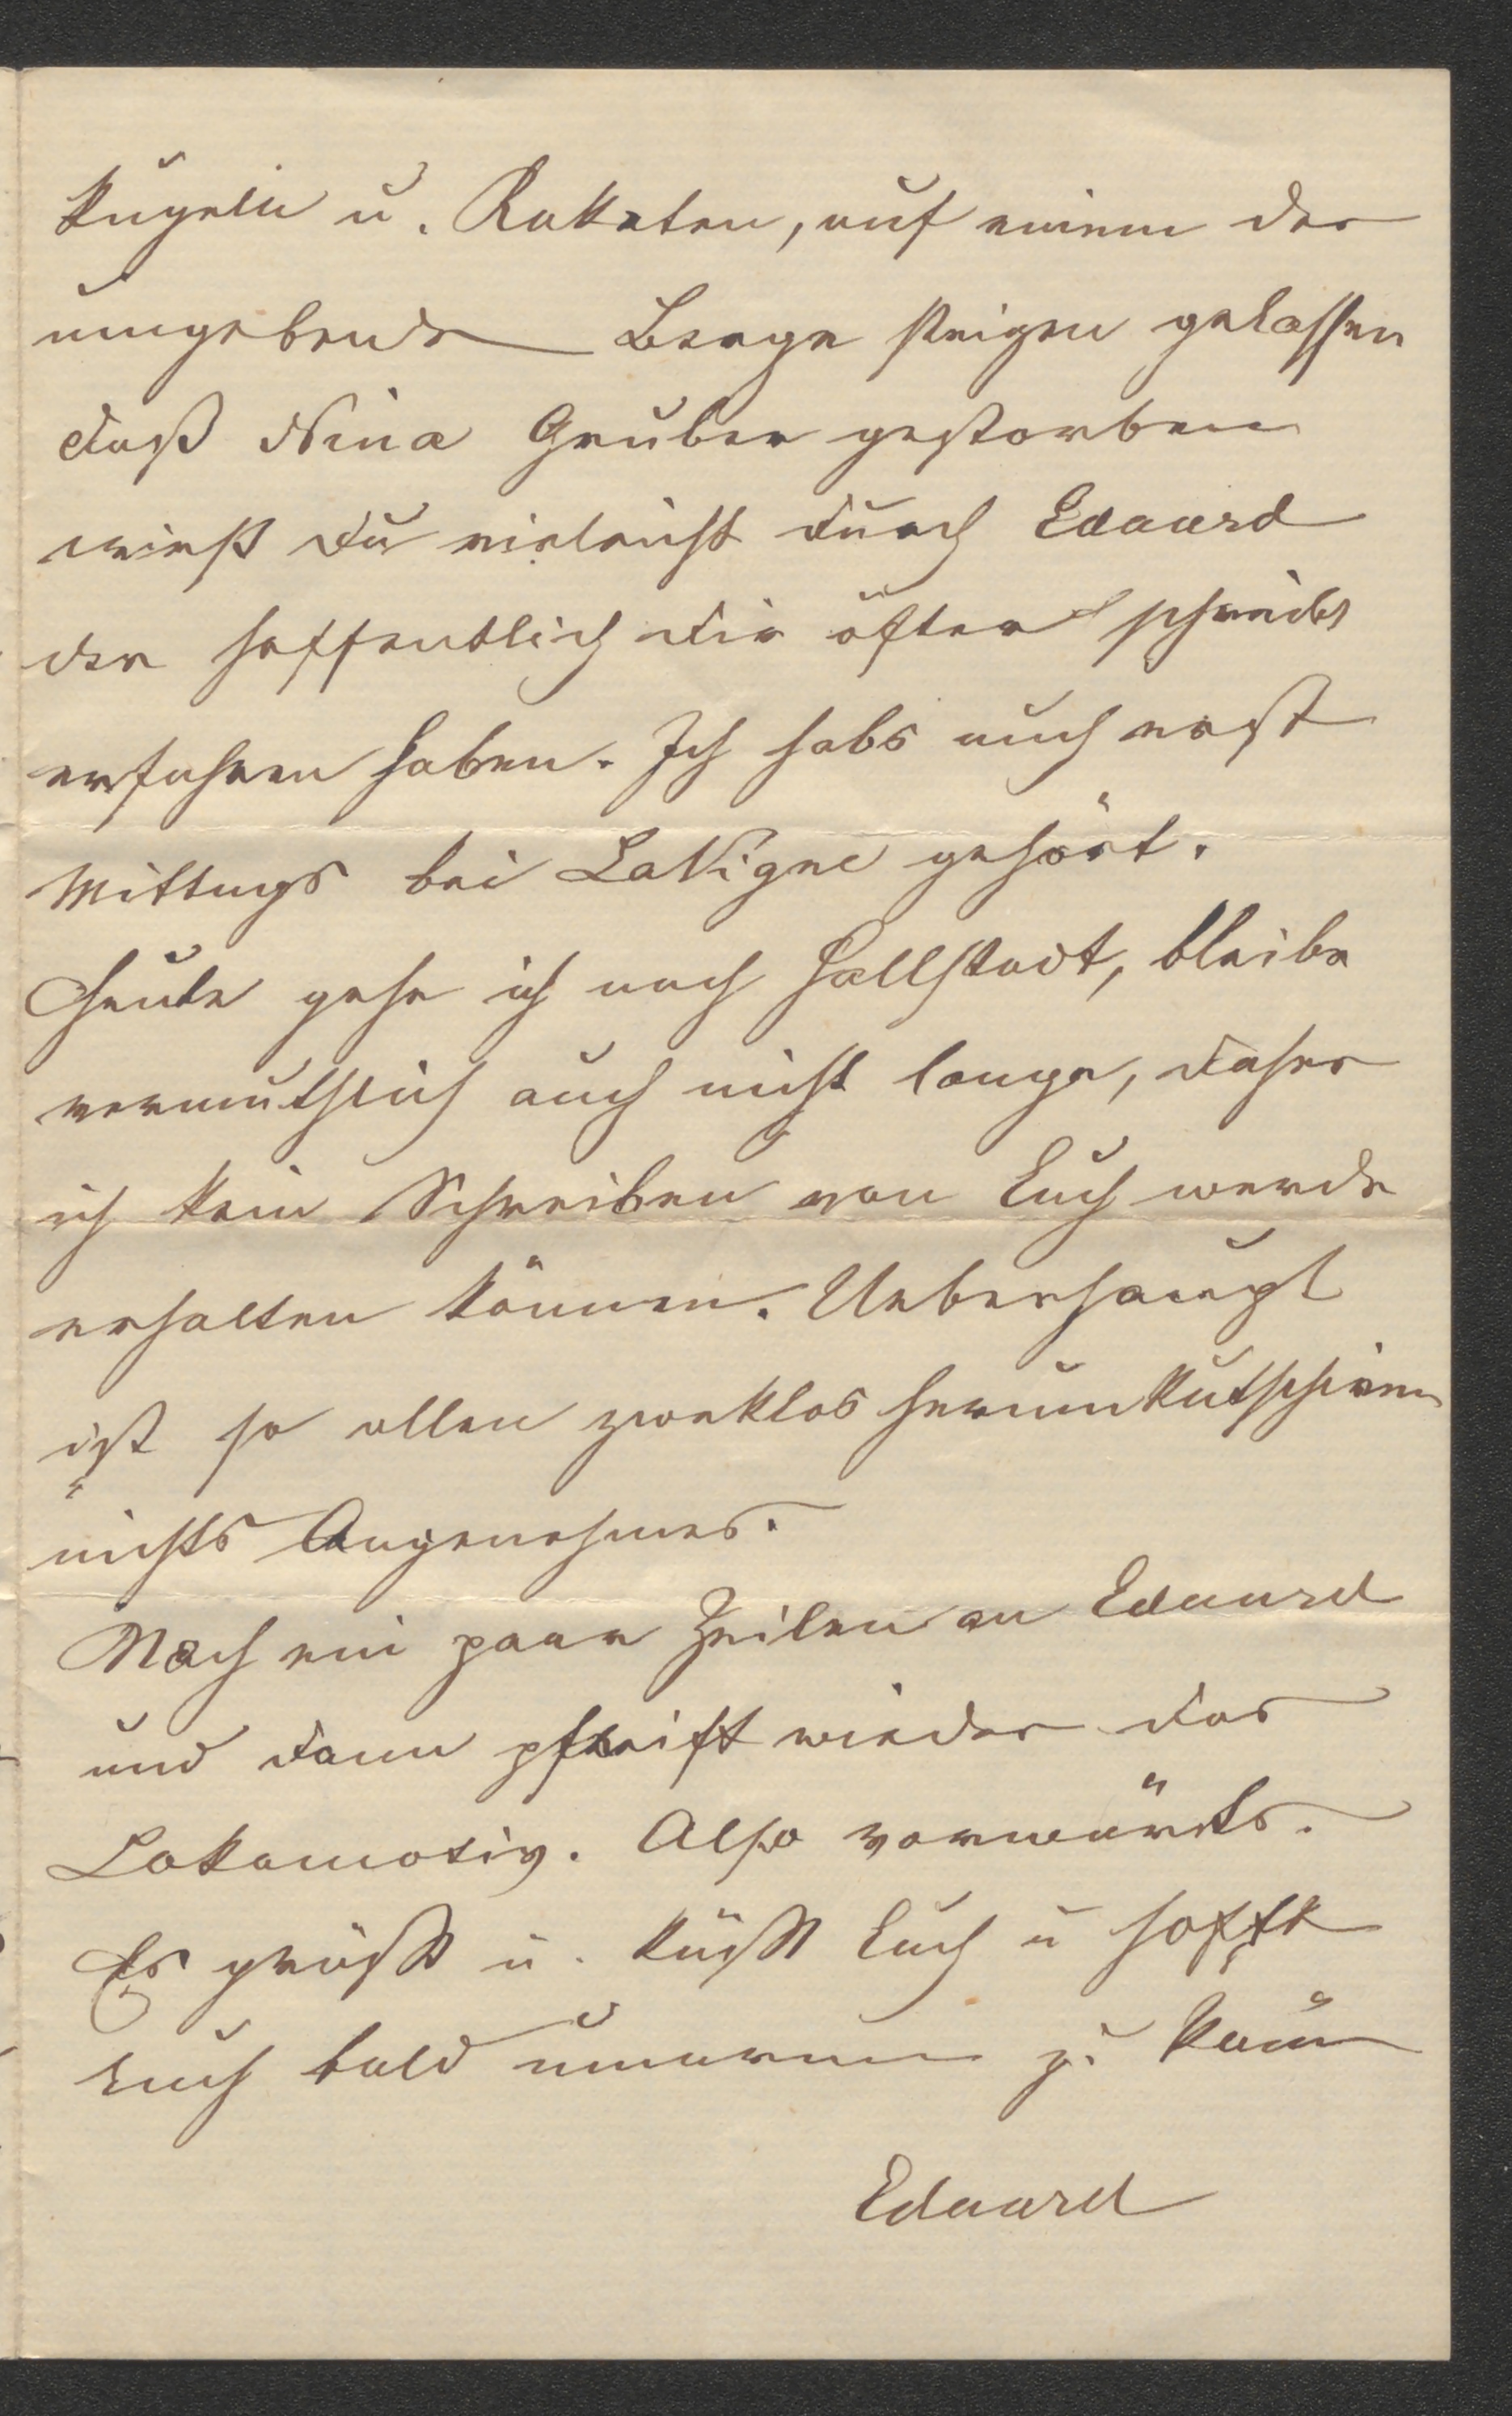 Kugeln u. Raketen, auf einem der
umgebende Berge steigen gelassen
daß Nina Gruber gestorben
wirst du vieleicht durch Eduard
der hoffentlich dir öfter schreibt
erfahren haben. Ich habs auch erst
Mittags bei LaVigne gehört.
Heute gehe ich nach Hallstadt, bleibe
vermuthlich auch nicht lange, daher
ich kein Schreiben von Euch werde
erhalten können. Ueberhaupt
ist so allen zweklos herumkutschiren
nichts Angenehmes.
Noch ein paar Zeilen an Eduard
und dann pfeift wieder das
Lokomotiv. Also vorwärts.
Es grüßt u. küßt Euch u hofft
Euch bald umarmen zu könn
Eduard